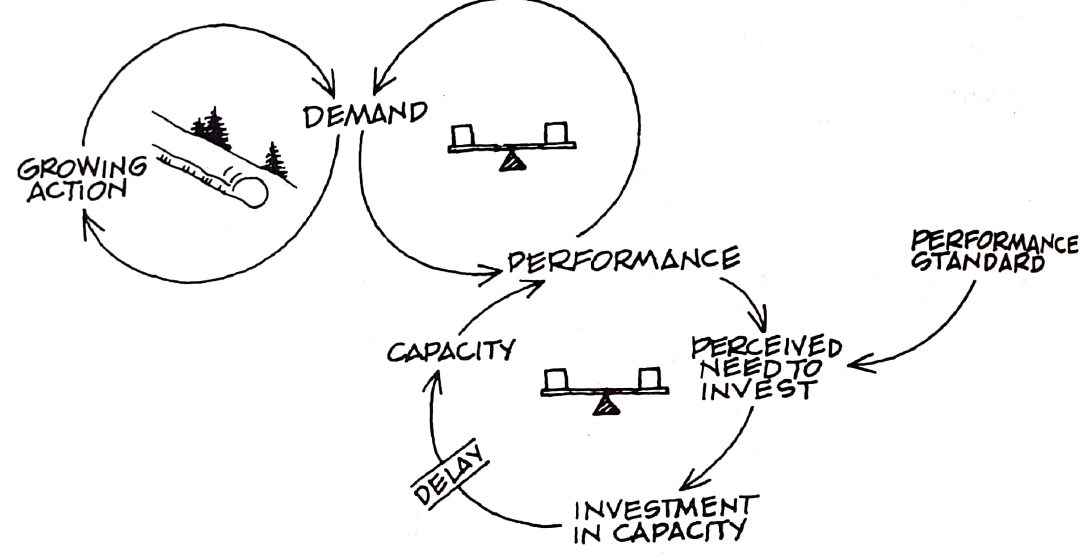 DEMAND
GROWING
ACTION
PERFORMANCE
PERFORMANCE
STANDARD
CAPACITY
PERCEIVED
NEED TO
INVEST
DELAY
INVESTMENT
IN CAPACITY